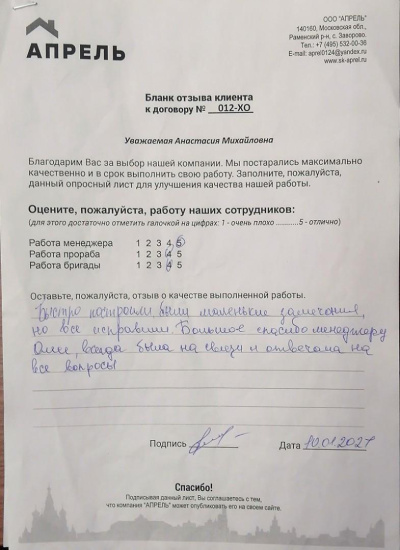 ООО "АПРЕЛЬ"
140160, Московская обл.,
Раменский р-н, с. Заворово.
Тел.: +7 (495) 532-00-36
E-mail: aprel0124@yandex.ru
www.sk-aprel.ru
АПРЕЛЬ
Бланк отзыва клиента
к договору № 012-ХО
Уважаемая Анастасия Михайловна
Благодарим Вас за выбор нашей компании. Мы постарались максимально
качественно и в срок выполнить свою работу. Заполните, пожалуйста,
данный опросный лист для улучшения качества нашей работы.
Оцените, пожалуйста, работу наших сотрудников:
(для этого достаточно отметить галочкой на цифрах: 1 - очень плохо ...........5 - отлично)
Работа менеджера 1 2 3 4 5
Работа прораба 1 2 3 4 5
Работа бригады 1 2 3 4 5
Оставьте, пожалуйста, отзыв о качестве выполненной работы.
Быстро построили были маленькие замечания,
но все исправили. Большое спасибо менеджеру
Оле, всегда была на связи и отвечала на
все вопросы
Подпись Дата 10.01.2021
Спасибо!
Подписывая данный лист, Вы соглашаетесь с тем,
что компания "АПРЕЛЬ" может опубликовать его на своем сайте.